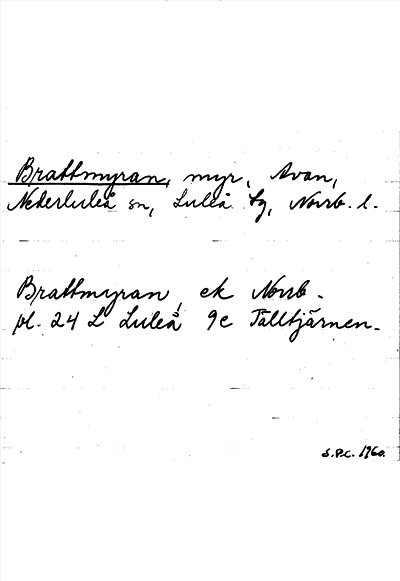 Brattmyran, myr, Avan,
Nederluleå sn, Luleå tg, Norrb. l.
Brattmyran, ek Norrb.
pl. 24 L Luleå 9c Talltjärnen.
S.P.C. 1960.